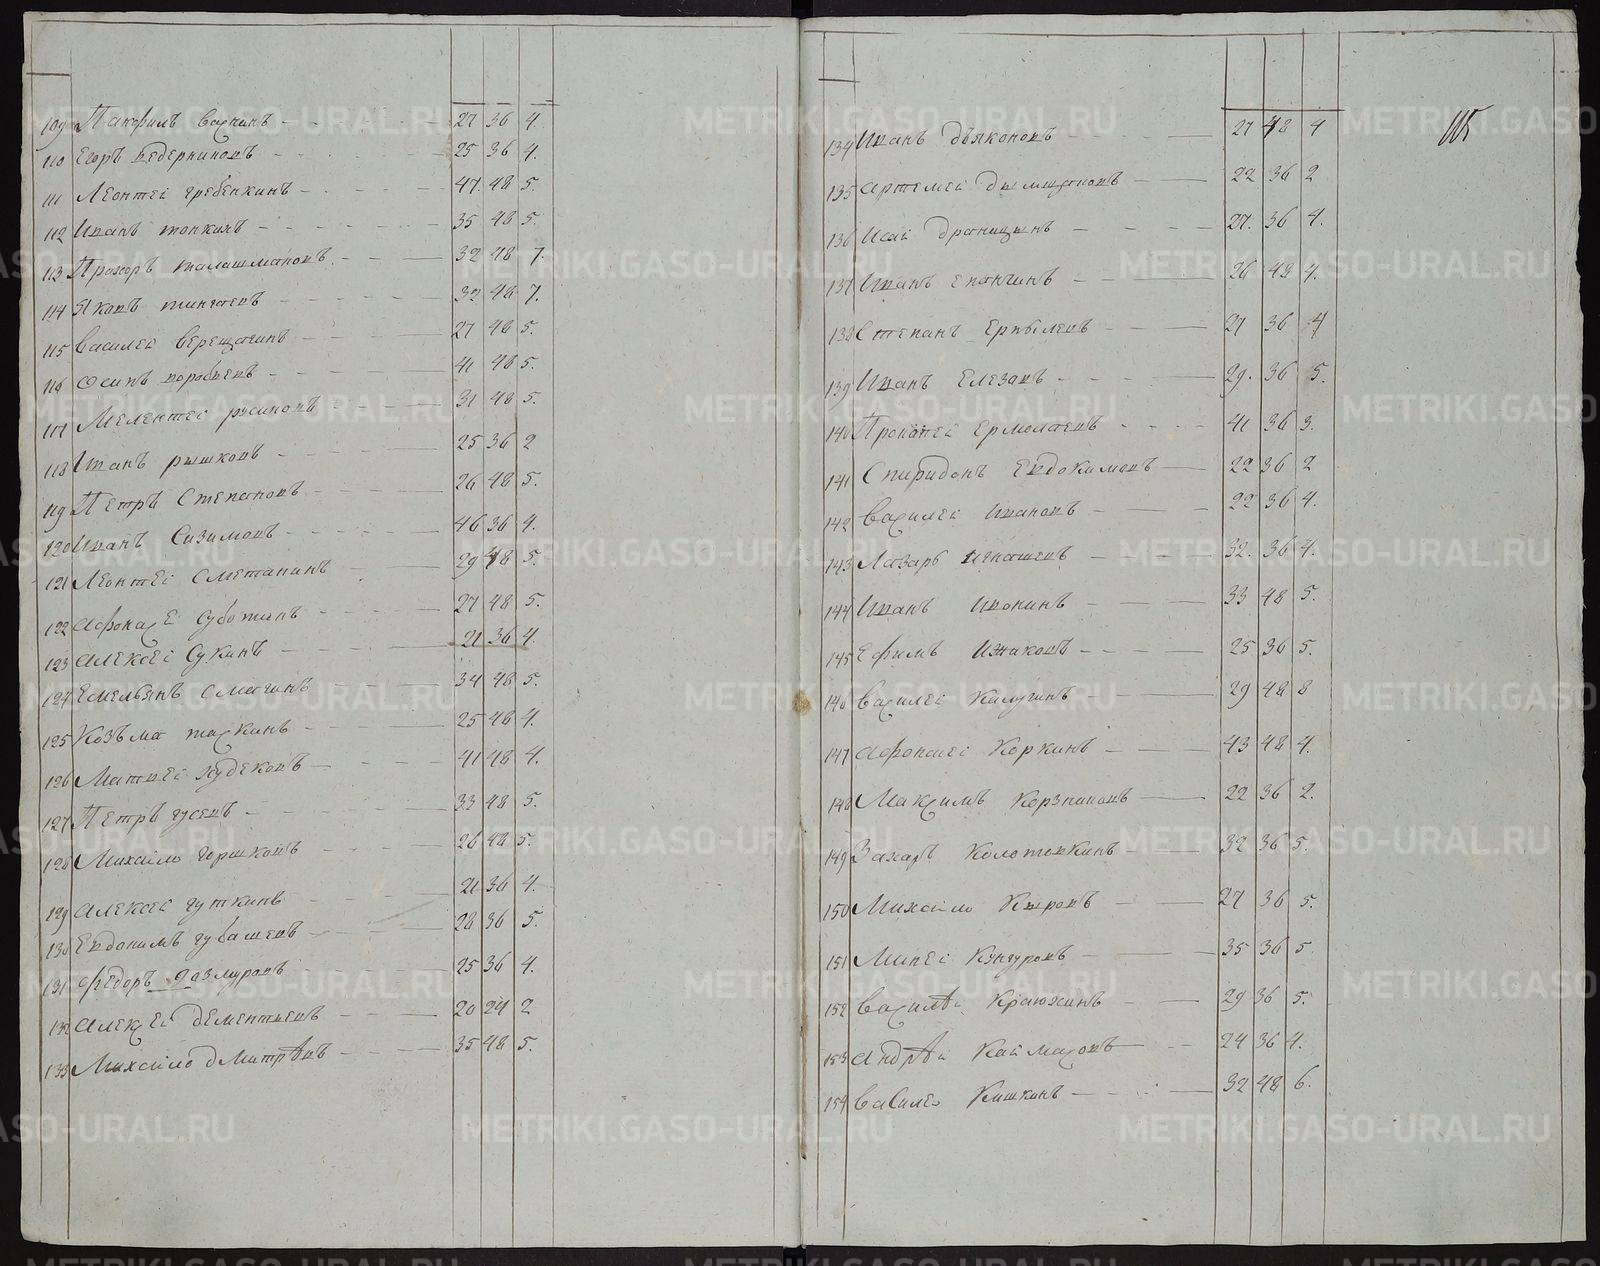 109 Панфилъ Васкинъ 27 36 4.
110 Егоръ Ведерниковъ 25 36 4.
111 Леонтеи Гребенкинъ 47. 48 5.
112 Иванъ Тонкихъ 35 48 5.
113 Прохоръ Талашмановъ 32 48 7.
114 Яковъ 32 48 7.
115 Василеи Верещагинъ 27 48 5.
116 Осипъ Воробьевъ 41 48 5.
117 Мелентеи Русиновъ 31 48 5.
118 Иванъ Рышковъ 25 36 2
119 Петръ Степановъ 26 48 5.
120 Иванъ Сизимовъ 46 36 4.
121 Леонтеи Сметанинъ 29 48 5.
122 Афонасеи Суботинъ 27 48 5.
123 Алексеи Сукинъ 21 36 4.
124 Емельянъ Смагинъ 34 48 5.
125 Козъма Таскинъ 25 48 4.
126 Матвеи Худековъ 41 48 4.
127 Петръ Гусевъ 33 48 5.
128 Михаило Горшковъ 26 48 5.
129 Алексеи Гуткинъ 21 36 4.
130 Евдокимъ Губашевъ 28 36 5.
131 Федоръ 25 36 4.
132 Алексеи Дементьевъ 20 24 2
133 Михаило Дмитрѣвъ 35 48 5.
115
134 Иванъ Дьяконовъ 27 48 4
135 Артемеи 22 36 2
136 Исаи Драницынъ 27. 36 4.
137 Иванъ Епанчинъ 26 48 4.
138 Степанъ Ерпылевъ 27 36 4
139 Иванъ Елезовъ 29. 36 5.
140 Прокопеи Ермолаевъ 41 36 3.
141 Спиридонъ Евдокимовъ 22 36 2
142 Василеи Ивановъ 22 36 4.
143 Лазарь Игнашевъ 32. 36 4.
144 Иванъ Ивонинъ 33 48 5.
145 Ефимъ 25 36 5.
146 Василеи Калугинъ 29 48 8
147 Афонасеи Коркинъ 43 48 4.
148 Максимъ Корзниковъ 22 36 2.
149 Захаръ Колотовкинъ 32 36 5.
150 Михаило Кыровъ 27 36 5.
151 Минеи Кунгуровъ 35 36 5
152 Василѣи Краюхинъ 29 36 5.
153 Андрѣи Каимасовъ 24 36 4.
154 Василеи Кишкинъ 32 48 6.
METRIKI.GASO-URAL.RU